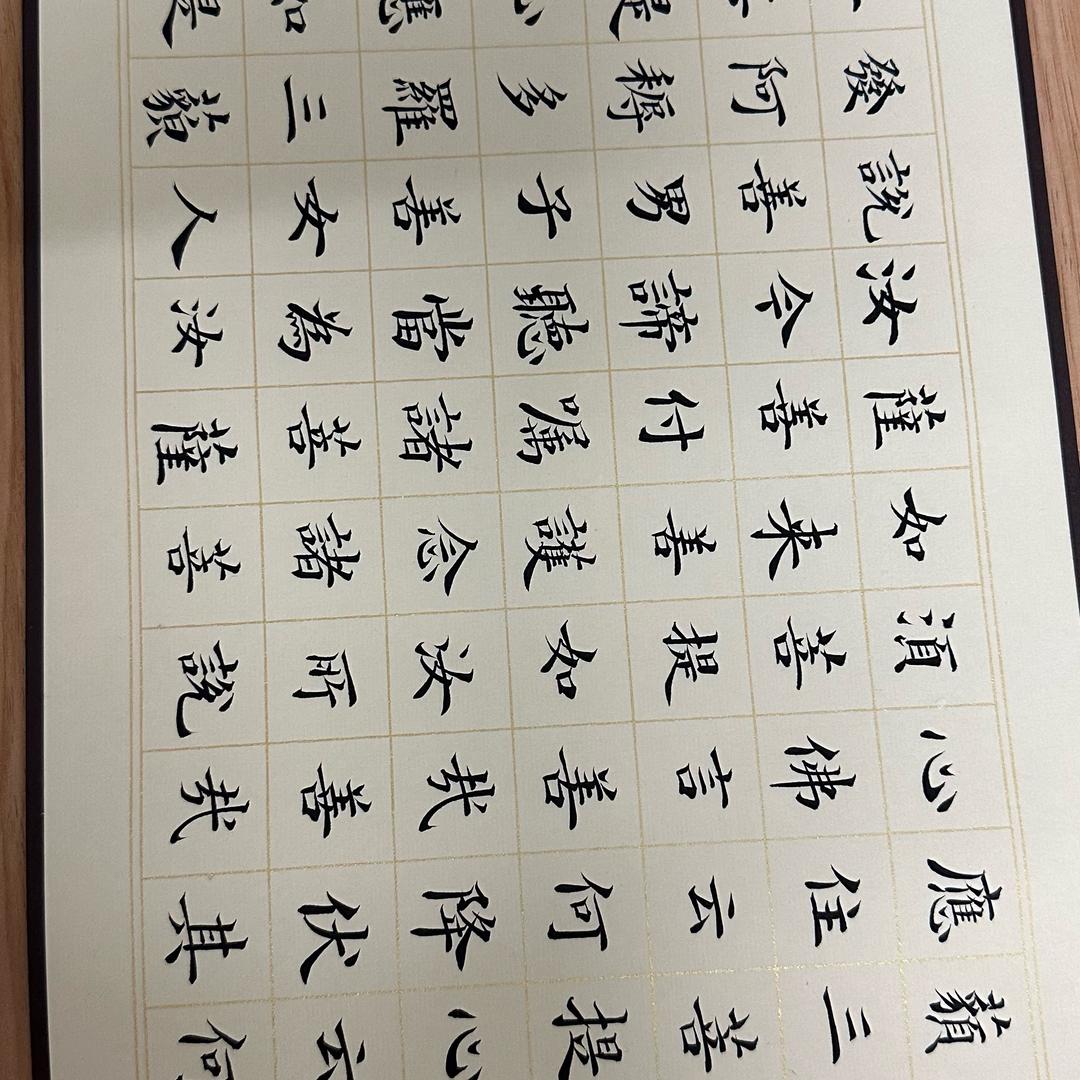 藐三菩提心云何
應住云何降伏其
心佛言善哉善哉
須菩提如汝所說
如來善護念諸菩
薩善付囑諸菩薩
汝今諦聽當為汝
說善男子善女人
發阿耨多羅三藐
提心應如是